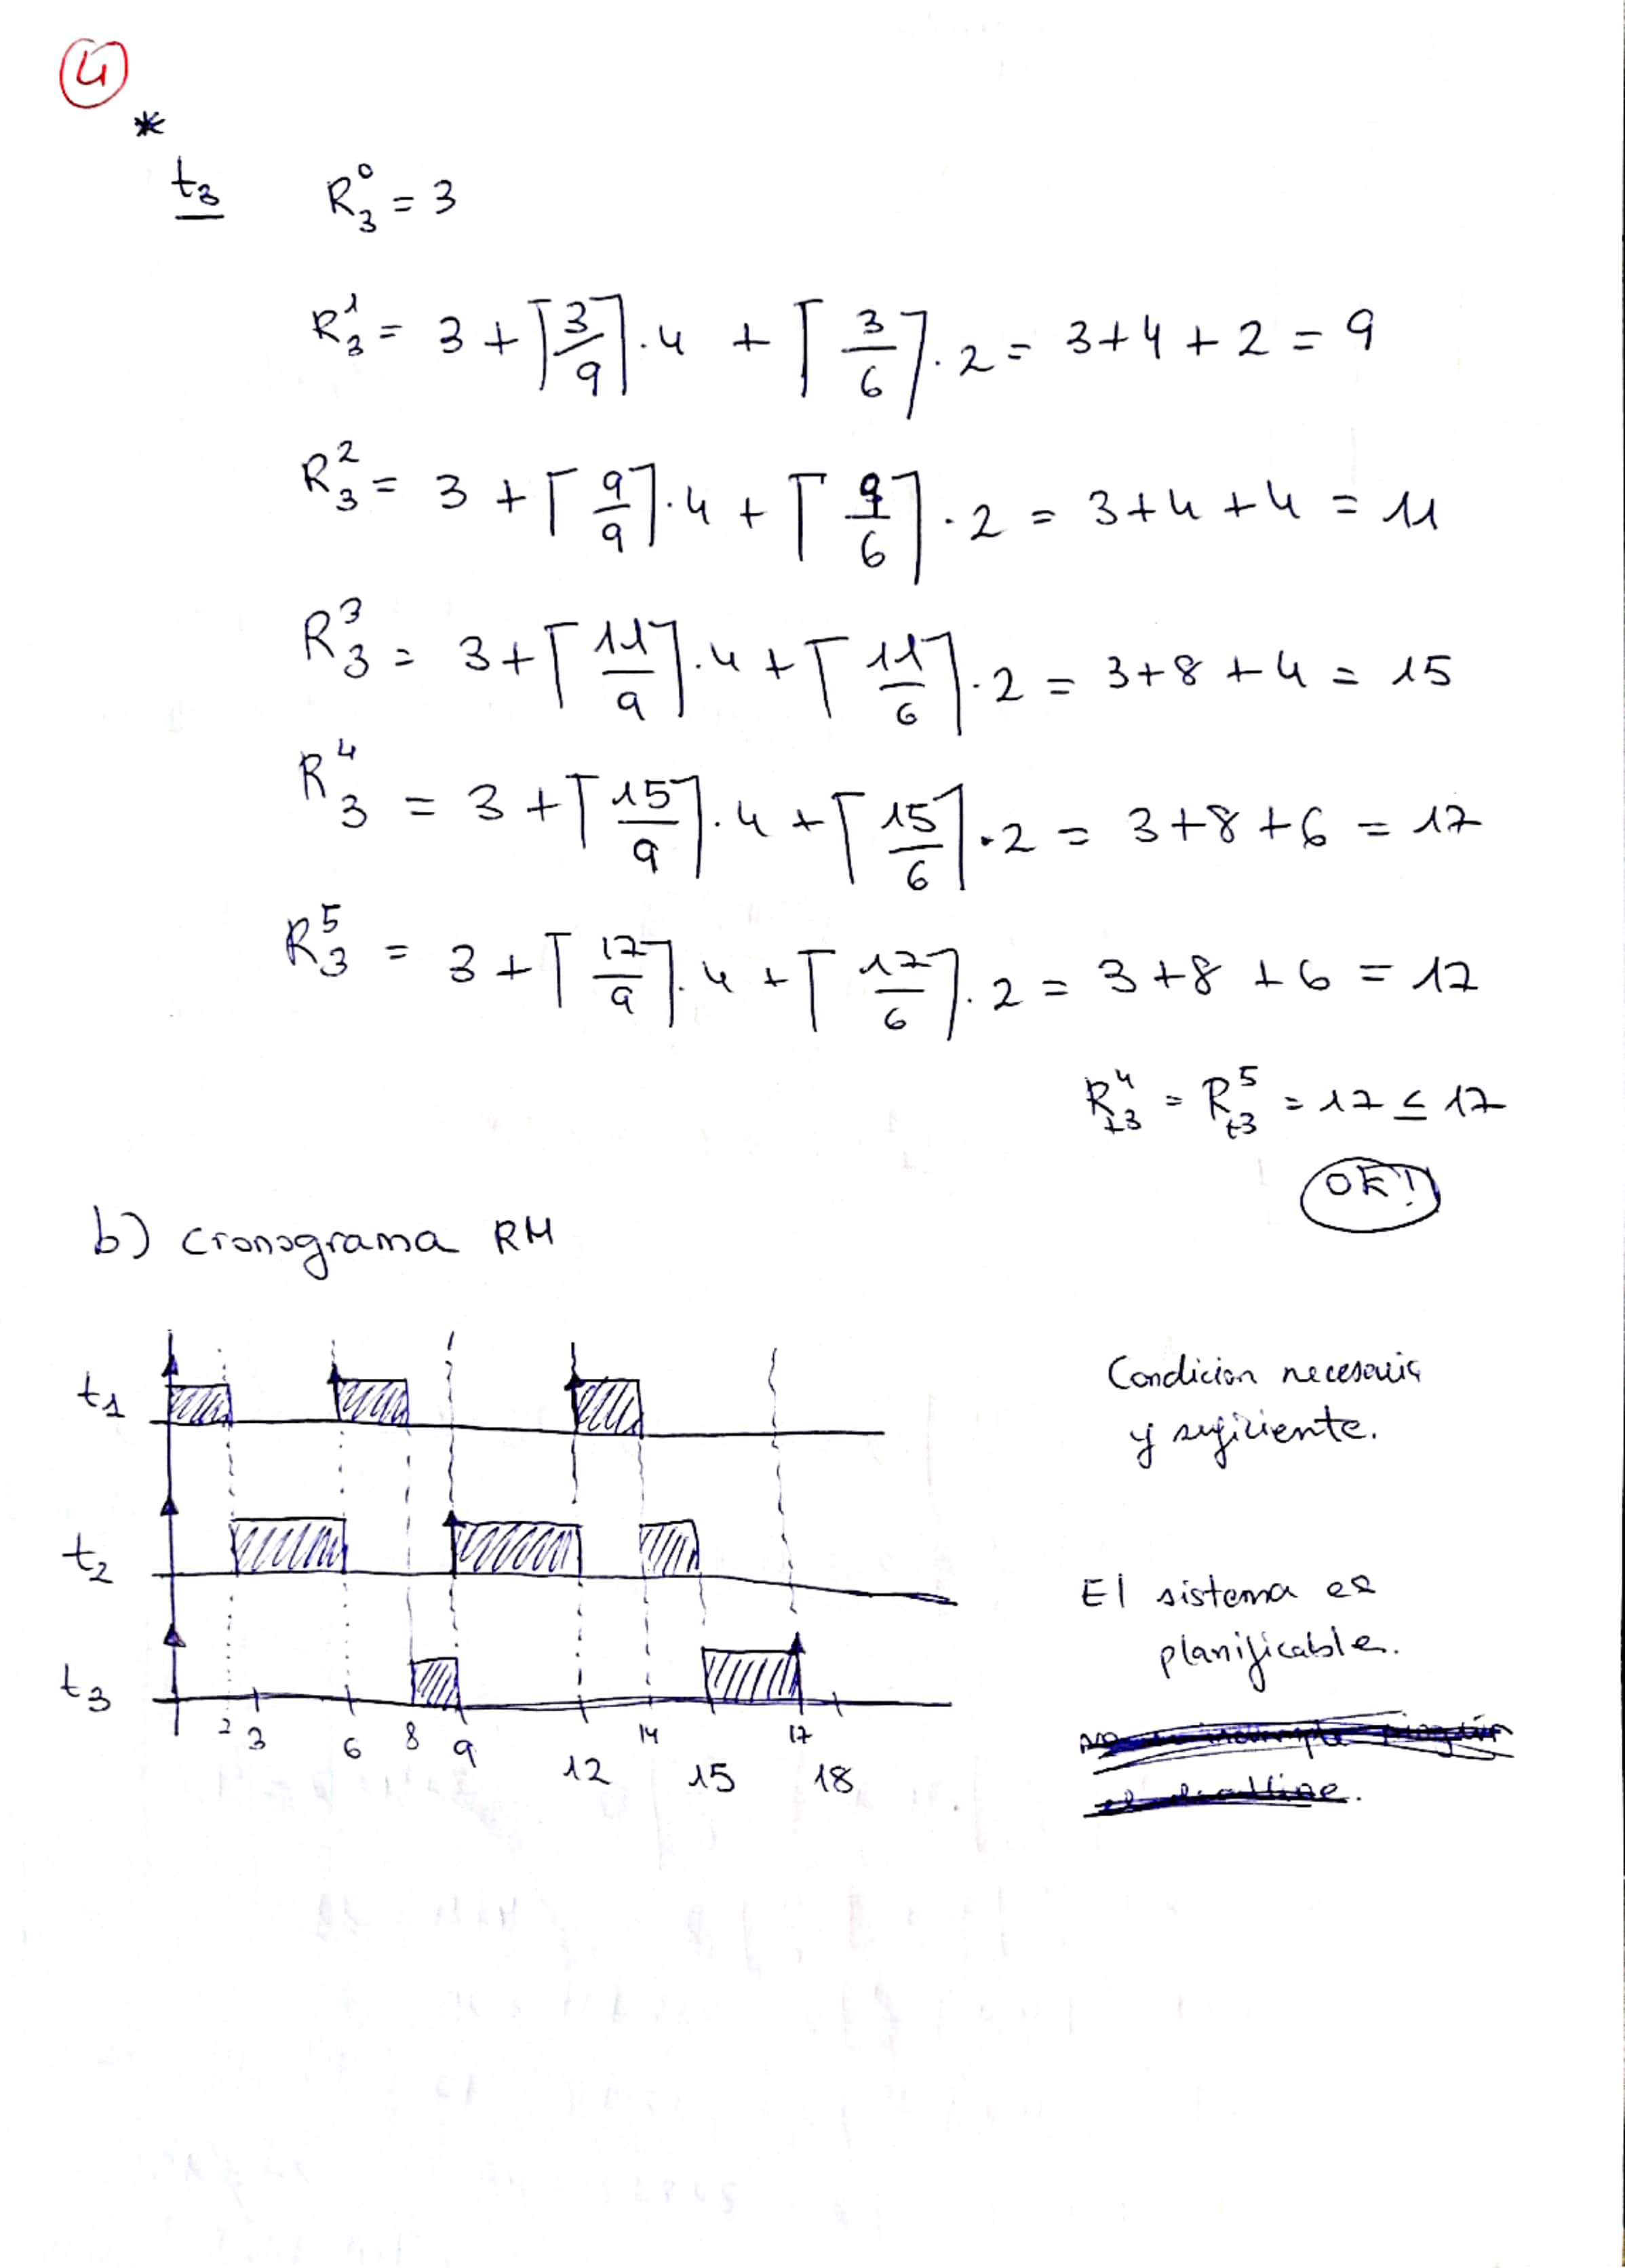 4
*
t₃ R₃⁰ = 3
R₃¹ = 3 + ⌈3/9⌉·4 + ⌈3/6⌉·2 = 3+4+2 = 9
R₃² = 3 + ⌈9/9⌉·4 + ⌈9/6⌉·2 = 3+4+4 = 11
R₃³ = 3 + ⌈11/9⌉·4 + ⌈11/6⌉·2 = 3+8+4 = 15
R₃⁴ = 3 + ⌈15/9⌉·4 + ⌈15/6⌉·2 = 3+8+6 = 17
R₃⁵ = 3 + ⌈17/9⌉·4 + ⌈17/6⌉·2 = 3+8+6 = 17
R⁴t3 = R⁵t3 = 17 ≤ 17
OK!
b) cronograma RM
t₁
t₂
t₃
2 3 6 8 9 12 14 15 17 18
Condicion necesaria
y suficiente.
El sistema es
planificable.